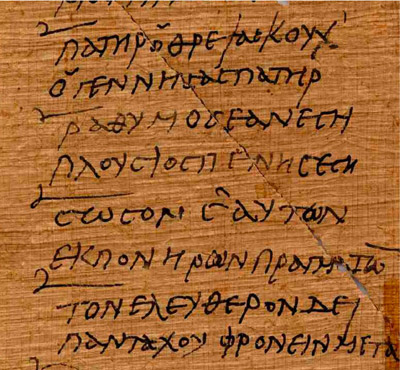 ΠΑΤΗΡ Ὁ ΘΡΕΨΑϹ ΚΟΥΧ
Ὁ ΓΕΝΝΗϹΑϹ ΠΑΤΗΡ
ΡΑΘΥΜΟϹ ΕΑΝ ΕϹΗ
ΠΛΟΥϹΙΟϹ ΠΕΝΗϹ ΕϹΗ
ϹΩϹΟΝ ἙΑΥΤΩΝ
ΕΚ ΠΟΝΗΡΩΝ
ΤΟΝ ΕΛΕΥΘΕΡΟΝ ΔΕΙ
ΠΑΝΤΑΧΟΥ ΦΡΟΝΕΙΝ ΜΕΓΑ